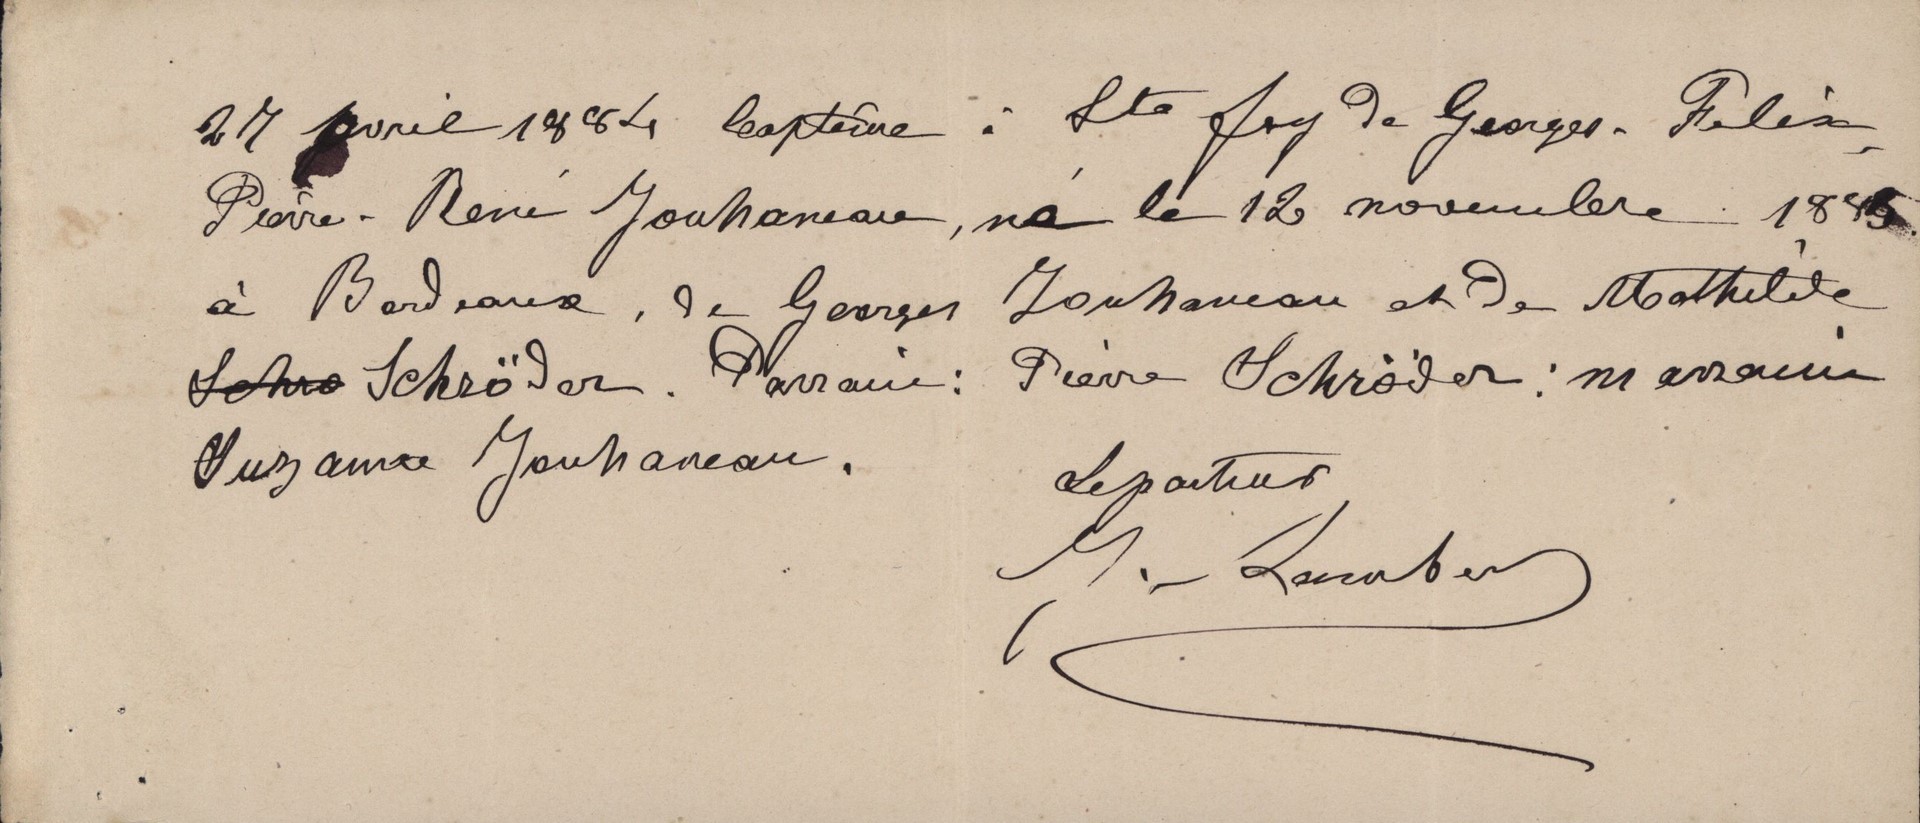 27 avril 1884 baptême à Ste Foy de Georges-Felix-
Pierre-René Jouhaneau, né le 12 novembre
à Bordeaux, de Georges Jouhaneau et de Mathilde
Schro Schröder. Parrain: Pierre Schröder: marraine
Suzanne Jouhaneau.
Le pasteur